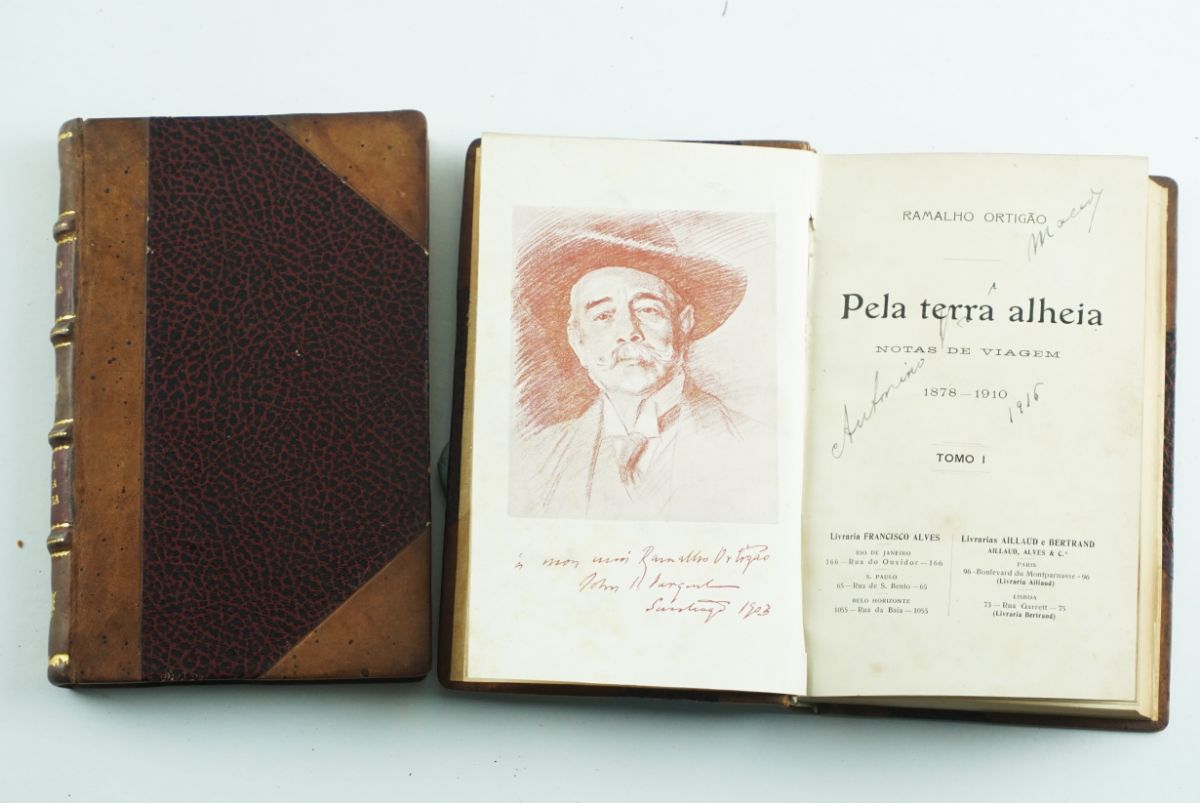 à mon ami Ramalho Ortigão
John S. Sargent
Santiago 1903
RAMALHO ORTIGÃO
Macedo
Pela terra alheia
NOTAS DE VIAGEM
Antonino
1878—1910
1916
TOMO I
Livraria FRANCISCO ALVES
RIO DE JANEIRO
166—Rua do Ouvidor—166
S. PAULO
65—Rua de S. Bento—65
BELO HORIZONTE
1055—Rua da Baia—1055
Livrarias AILLAUD e BERTRAND
AILLAUD, ALVES & C.ª
PARIS
96-Boulevard du Montparnasse-96
(Livraria Aillaud)
LISBOA
73—Rua Garrett—75
(Livraria Bertrand)